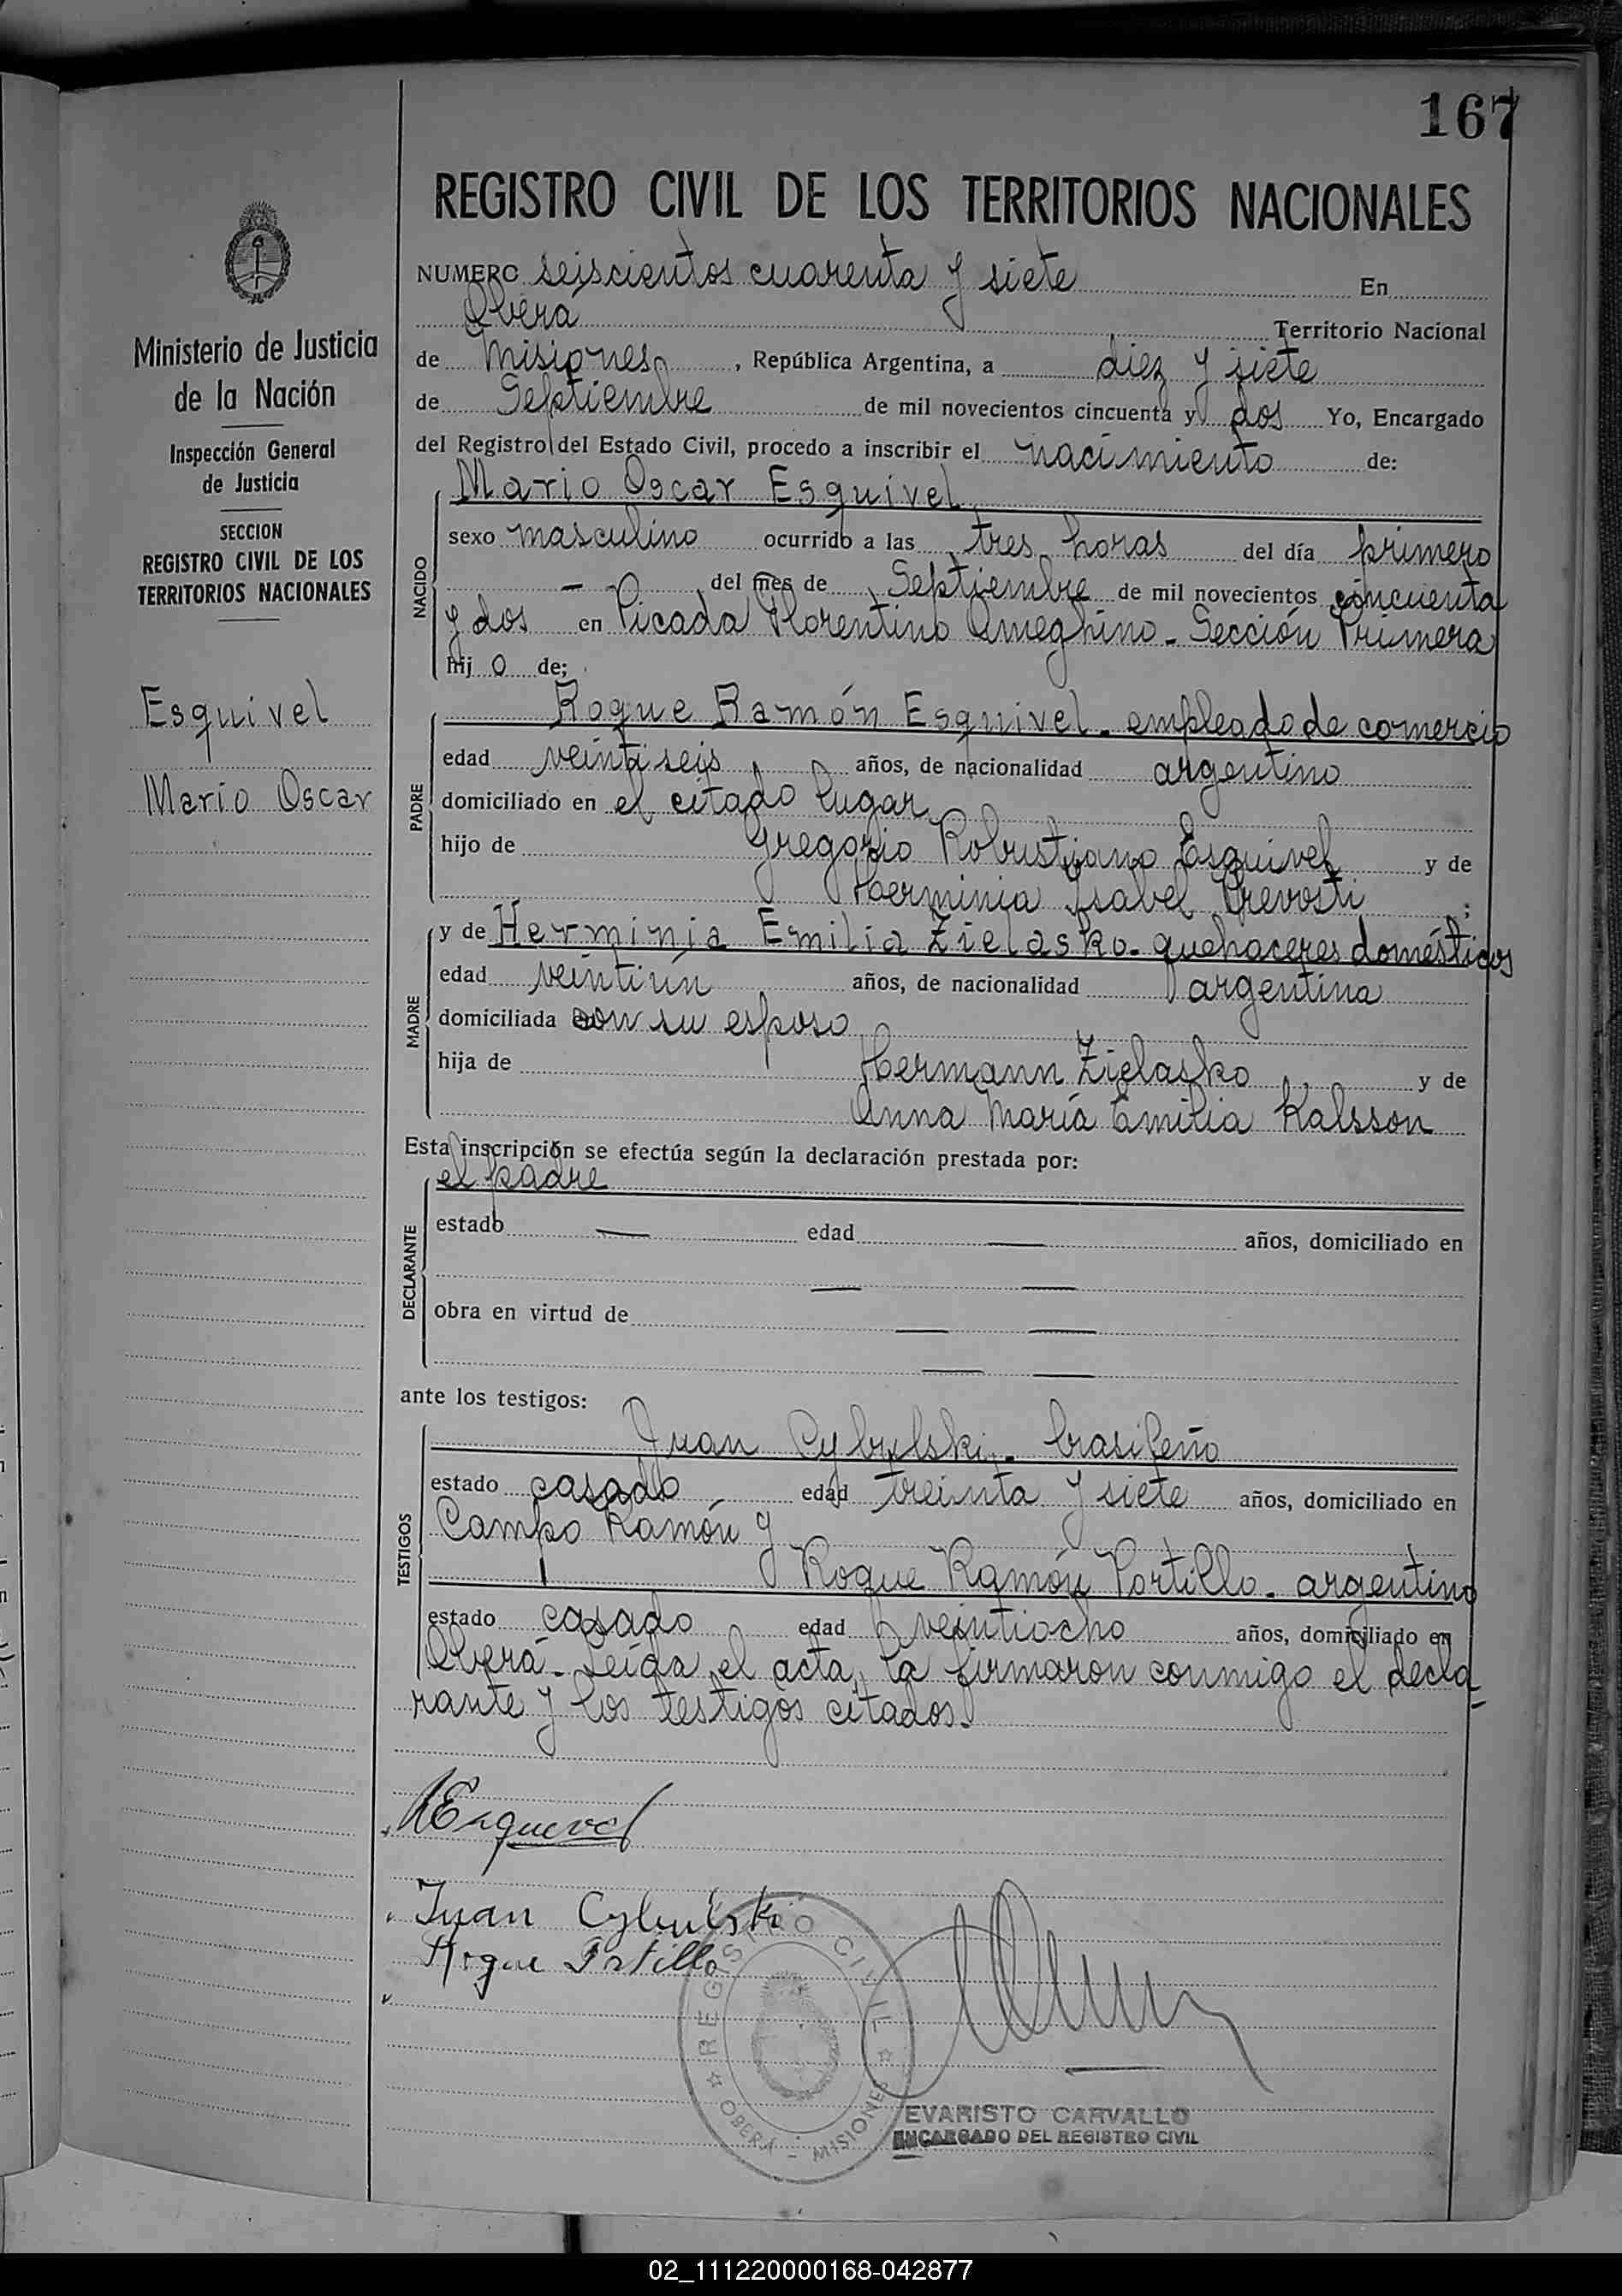 167
REGISTRO CIVIL DE LOS TERRITORIOS NACIONALES
NUMERO seiscientos cuarenta y siete En
Oberá Territorio Nacional
de Misiones, República Argentina, a diez y siete
de Septiembre de mil novecientos cincuenta y dos Yo, Encargado
del Registro del Estado Civil, procedo a inscribir el nacimiento de:
Ministerio de Justicia
de la Nación
Inspección General
de Justicia
SECCION
REGISTRO CIVIL DE LOS
TERRITORIOS NACIONALES
Esquivel
Mario Oscar
NACIDO
Mario Oscar Esquivel
sexo masculino ocurrido a las tres horas del día primero
— del mes de Septiembre de mil novecientos cincuenta
y dos en Picada Florentino Ameghino - Sección Primera
hij o de;
PADRE
Roque Ramón Esquivel - empleado de comercio
edad veintiseis años, de nacionalidad argentino
domiciliado en el citado lugar
hijo de Gregorio Robustiano Esquivel y de
Herminia Isabel Prevosti ;
MADRE
y de Herminia Emilia Zielasko - quehaceres domésticos
edad veintiún años, de nacionalidad argentina
domiciliada con su esposo
hija de Hermann Zielasko y de
Anna María Emilia Kalsson
Esta inscripción se efectúa según la declaración prestada por:
DECLARANTE
el padre
estado — edad — años, domiciliado en
— —
obra en virtud de — —
— —
ante los testigos:
TESTIGOS
Juan Cybulski - brasileño
estado casado edad treinta y siete años, domiciliado en
Campo Ramón y
Roque Ramón Portillo - argentino
estado casado edad veintiocho años, domiciliado en
Oberá - Leída el acta, la firmaron conmigo el decla-
rante y los testigos citados.
REsquivel
Juan Cybulski
Roque Portillo
REGISTRO CIVIL
OBERÁ - MISIONES
EVARISTO CARVALLO
ENCARGADO DEL REGISTRO CIVIL
02_111220000168-042877